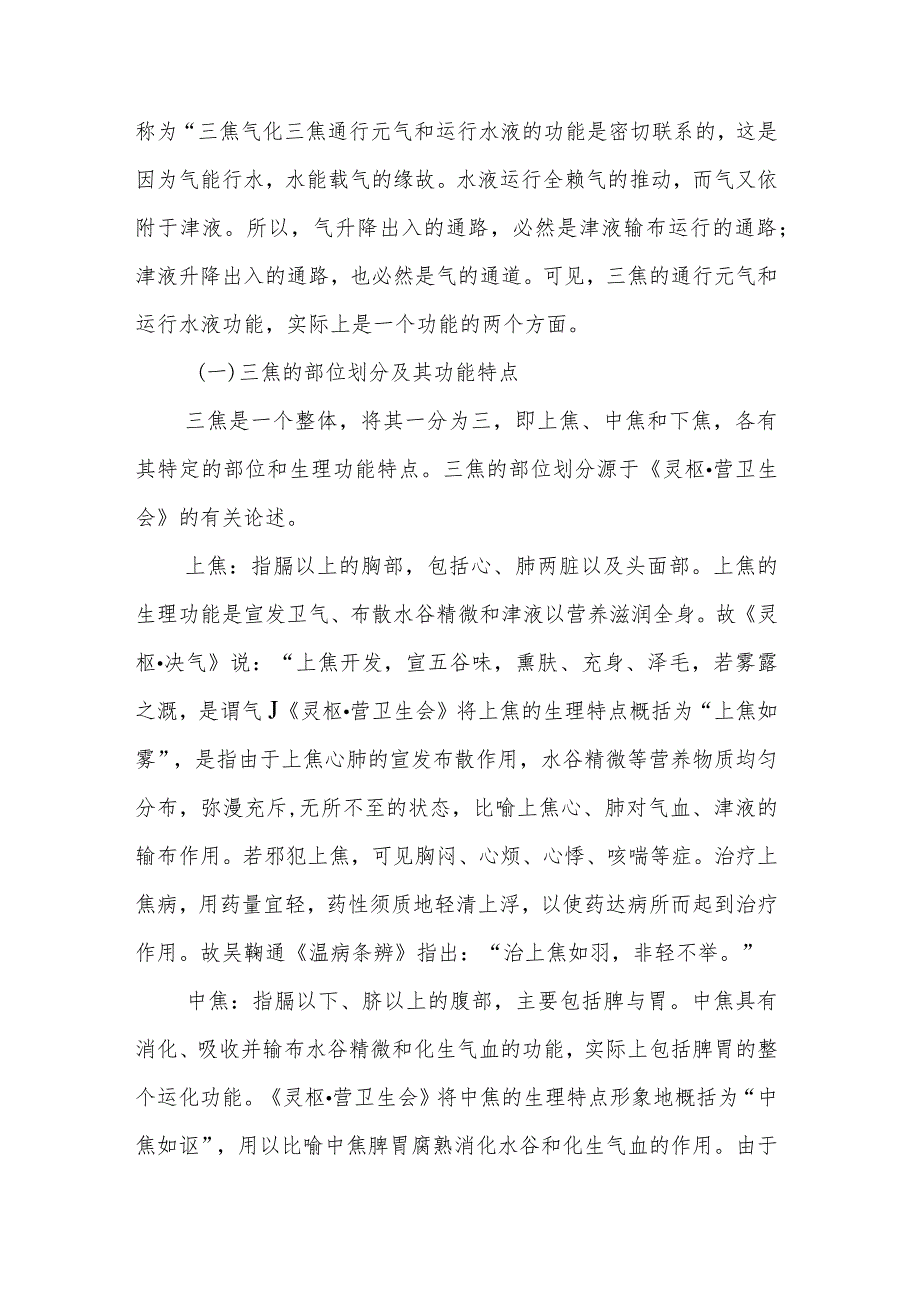 称为“三焦气化三焦通行元气和运行水液的功能是密切联系的，这是
因为气能行水，水能载气的缘故。水液运行全赖气的推动，而气又依
附于津液。所以，气升降出入的通路，必然是津液输布运行的通路；
津液升降出入的通路，也必然是气的通道。可见，三焦的通行元气和
运行水液功能，实际上是一个功能的两个方面。
(一)三焦的部位划分及其功能特点
三焦是一个整体，将其一分为三，即上焦、中焦和下焦，各有
其特定的部位和生理功能特点。三焦的部位划分源于《灵枢•营卫生
会》的有关论述。
上焦：指膈以上的胸部，包括心、肺两脏以及头面部。上焦的
生理功能是宣发卫气、布散水谷精微和津液以营养滋润全身。故《灵
枢•决气》说：“上焦开发，宣五谷味，熏肤、充身、泽毛，若雾露
之溉，是谓气J《灵枢•营卫生会》将上焦的生理特点概括为“上焦如
雾”，是指由于上焦心肺的宣发布散作用，水谷精微等营养物质均匀
分布，弥漫充斥,无所不至的状态，比喻上焦心、肺对气血、津液的
输布作用。若邪犯上焦，可见胸闷、心烦、心悸、咳喘等症。治疗上
焦病，用药量宜轻，药性须质地轻清上浮，以使药达病所而起到治疗
作用。故吴鞠通《温病条辨》指出：“治上焦如羽，非轻不举。”
中焦：指膈以下、脐以上的腹部，主要包括脾与胃。中焦具有
消化、吸收并输布水谷精微和化生气血的功能，实际上包括脾胃的整
个运化功能。《灵枢•营卫生会》将中焦的生理特点形象地概括为“中
焦如讴”，用以比喻中焦脾胃腐熟消化水谷和化生气血的作用。由于